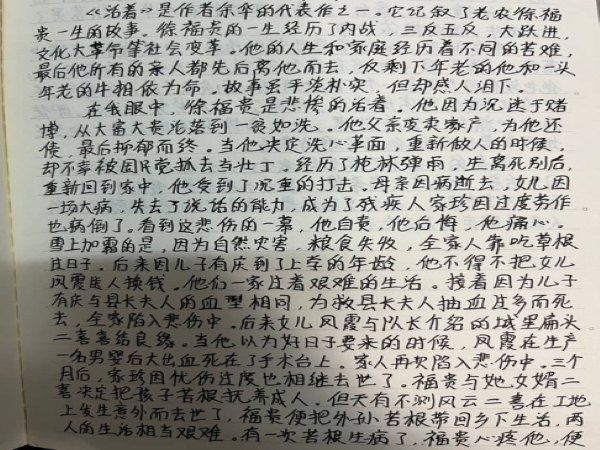 《活着》是作者余华的代表作之一。它记叙了老农徐福
贵一生的故事。徐福贵的一生经历了内战，三反五反，大跃进，
文化大革命等社会变革。他的人生和家庭经历着不同的苦难，
最后他所有的亲人都先后离他而去，仅剩下年老的他和一头
年老的牛相依为命。故事虽平淡朴实，但却感人泪下。
在我眼中，徐福贵是悲惨的活着。他因为沉迷于赌
博，从大富大贵沦落到一贫如洗。他父亲变卖家产，为他还
债，最后抑郁而终。当他决定洗心革面，重新做人的时候，
却不幸被国民党抓去当壮丁。经历了枪林弹雨，生离死别后，
重新回到家中，他受到了沉重的打击，母亲因病逝去，女儿因
一场大病，失去了说话的能力，成为了残疾人家珍因过度劳作
也病倒了。看到这悲伤的一幕，他自责，他后悔，他痛心。
雪上加霜的是，因为自然灾害，粮食失收，全家人靠吃草根
过日子。后来因儿子有庆到了上学的年龄，他不得不把女儿
凤霞送人换钱。他们一家过着艰难的生活。接着因为儿子
有庆与县长夫人的血型相同，为救县长夫人抽血过多而死
去，全家陷入悲伤中。后来女儿凤霞与队长介绍的城里偏头
二喜喜结良缘。当他以为好日子要来的时候，凤霞在生产
一名男婴后大出血死在了手术台上。家人再次陷入悲伤中。三个
月后，家珍因忧伤过度也相继去世了。福贵与她女婿二
喜决定把孩子苦根抚养成人。但天有不测风云二喜在工地
上发生意外而去世了，福贵便把外孙苦根带回乡下生活，两
人的生活相当艰难。有一次苦根生病了，福贵心疼他，便